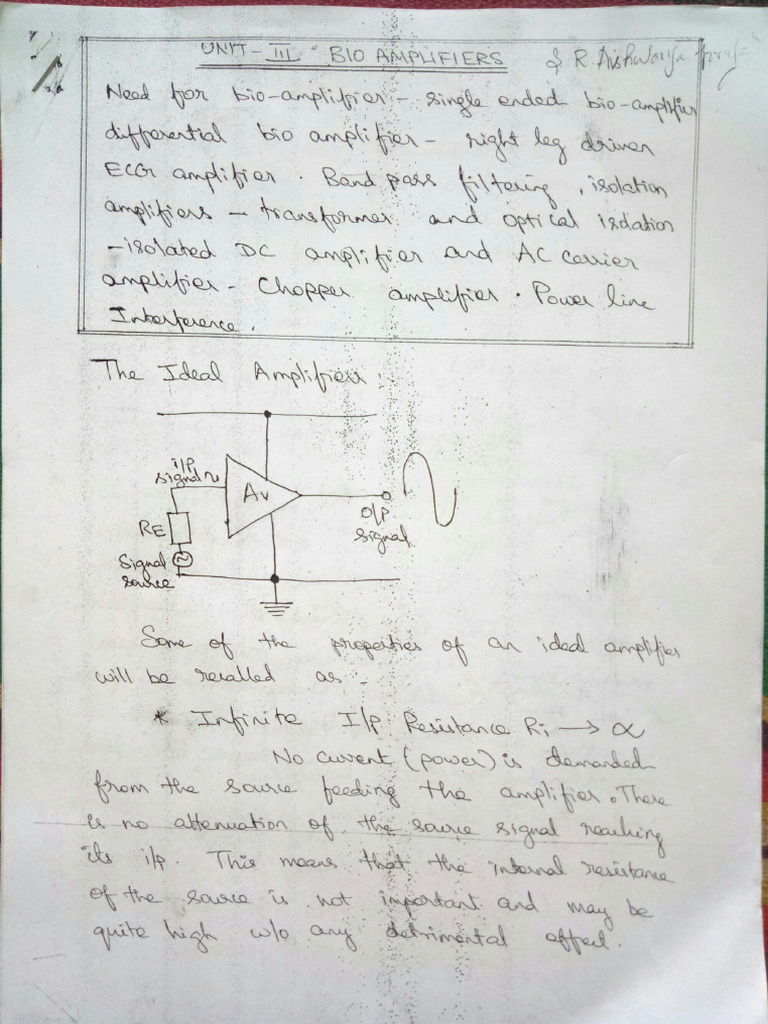 UNIT - III - BIO AMPLIFIERS
R. Aishwarya
Need for bio-amplifier - single ended bio-amplifier
differential bio amplifier - right leg driven
ECG amplifier. Band pass filtering, isolation
amplifiers - transformer and optical isolation
- isolated DC amplifier and AC carrier
amplifier - Chopper amplifier. Power line
Interference.
The Ideal Amplifiers:
i/p
signal
Av
RE
o/p
signal
Signal
source
Some of the properties of an ideal amplifier
will be recalled as -
* Infinite I/p Resistance Ri → ∝
No current (power) is demanded
from the source feeding the amplifier. There
is no attenuation of the source signal reaching
its i/p. This means that the internal resistance
of the source is not important and may be
quite high w/o any detrimental effect.